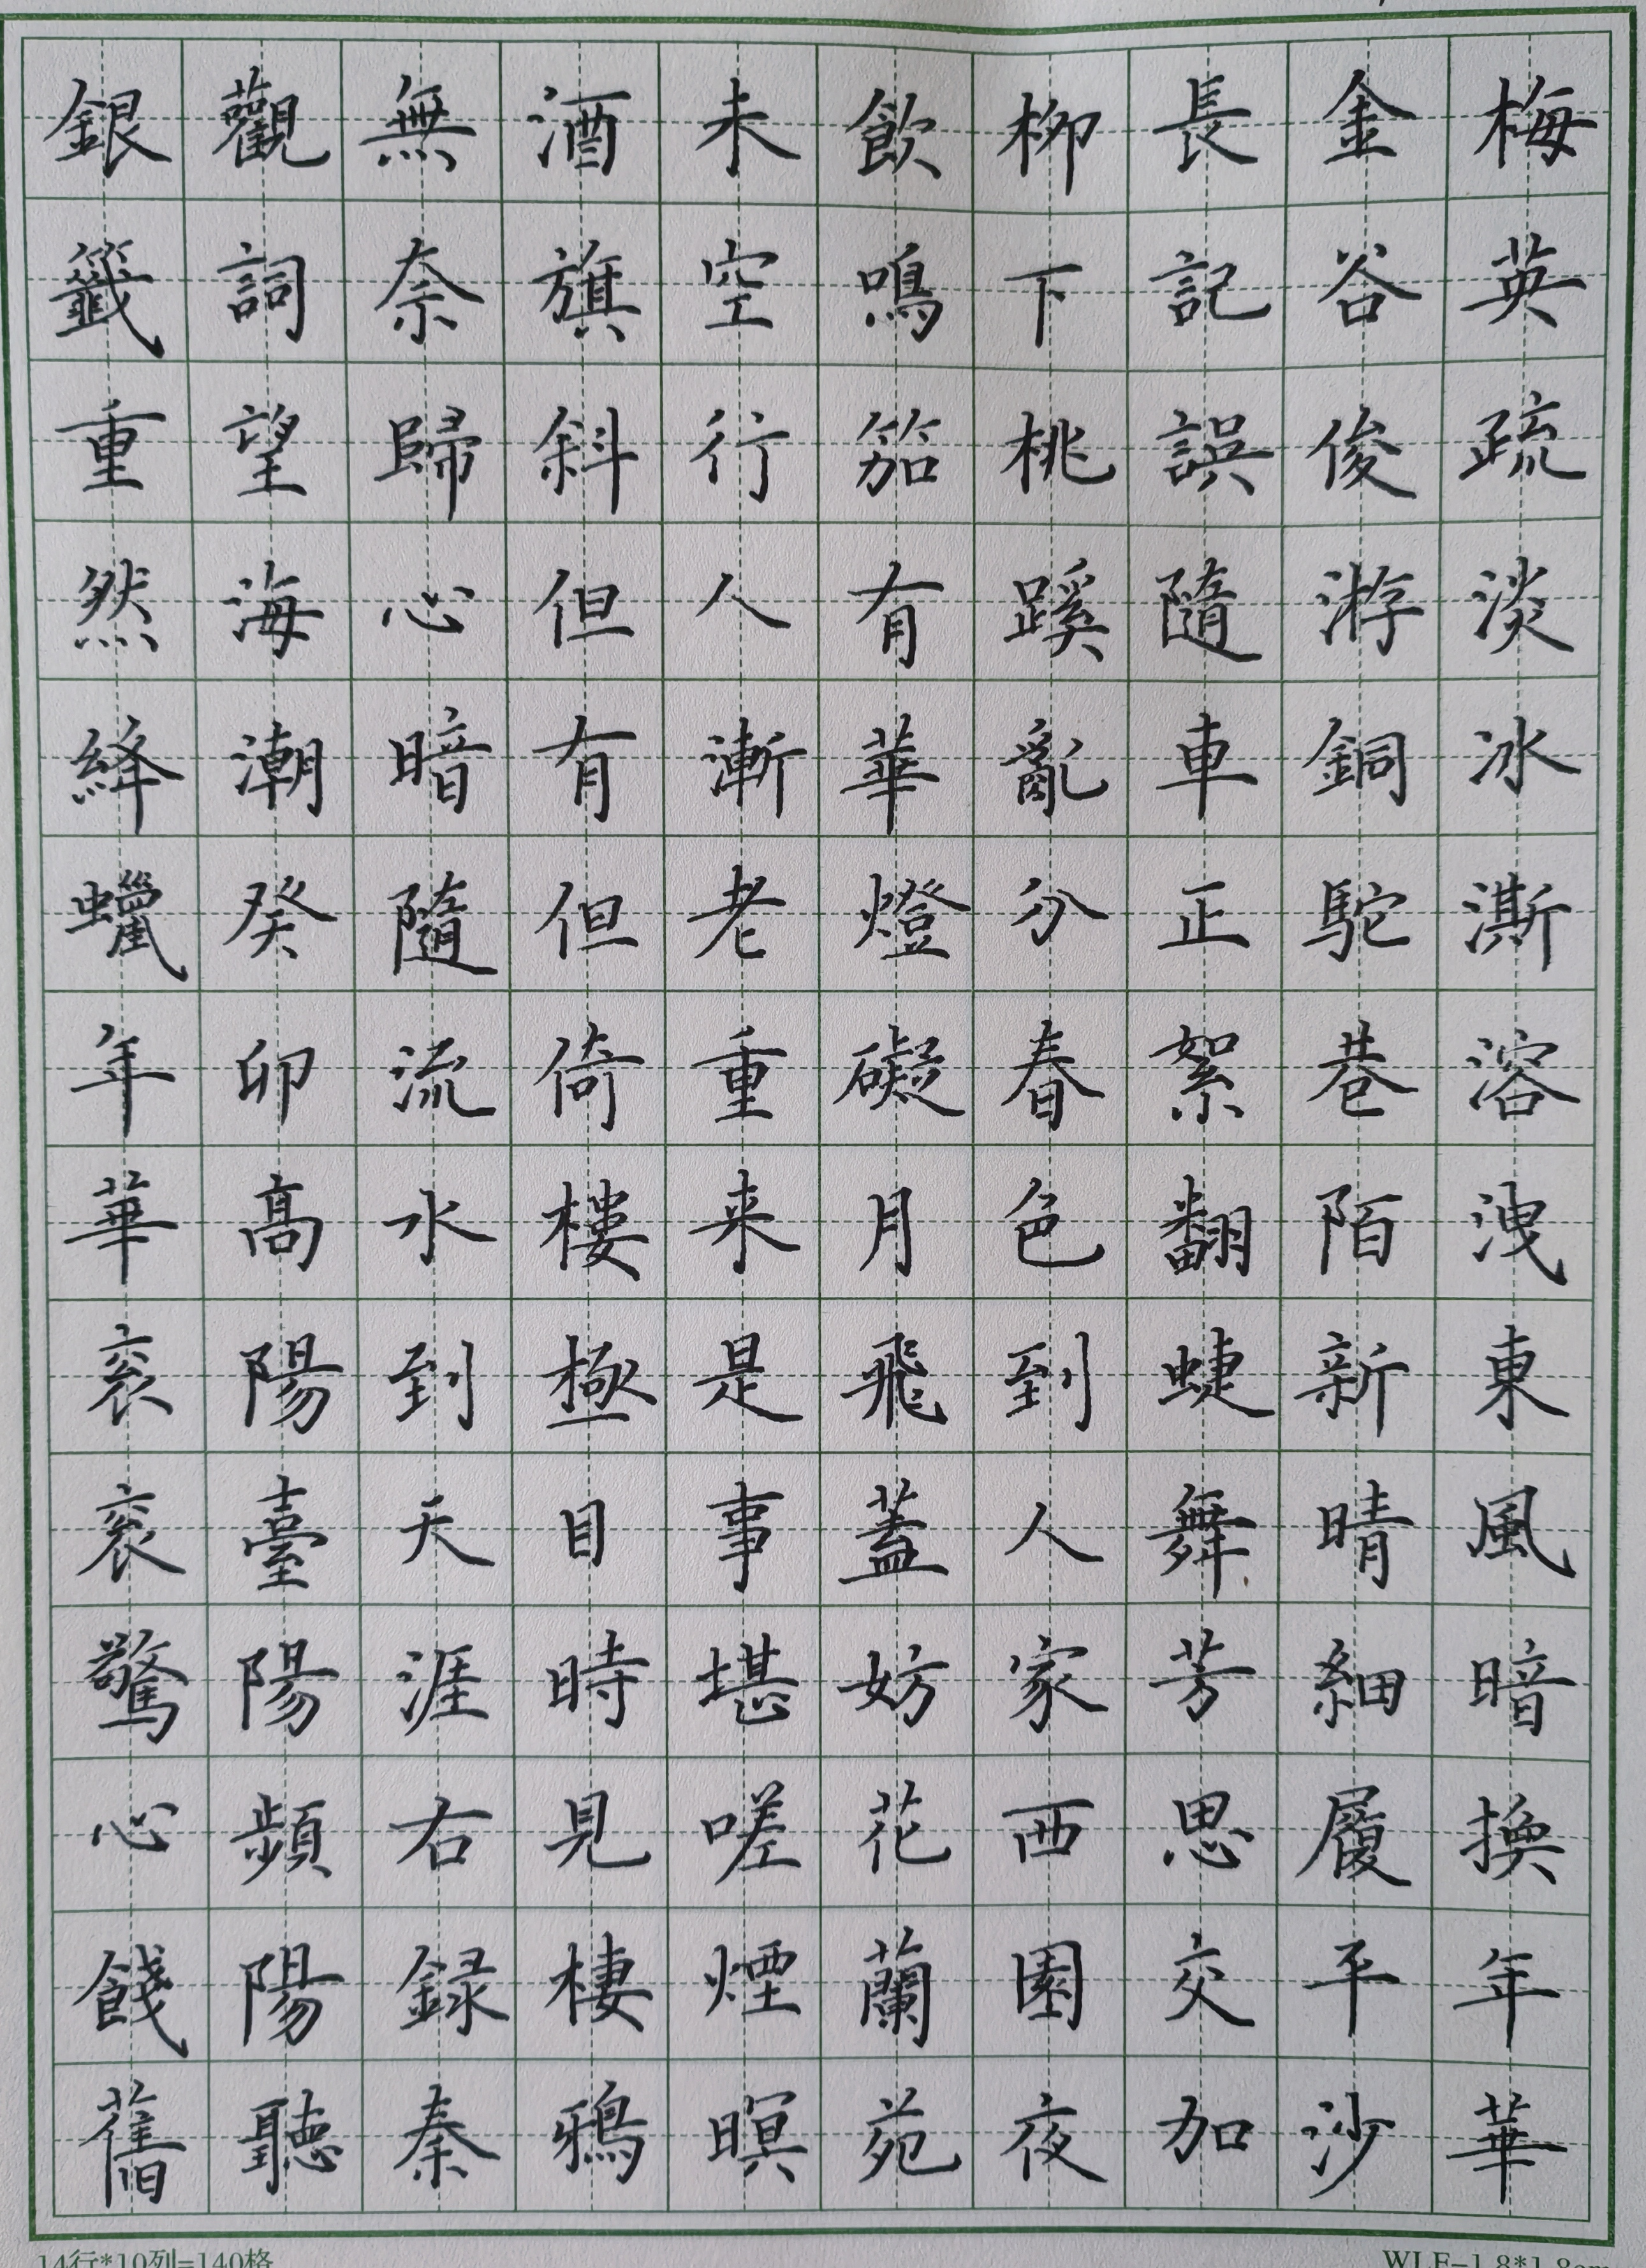 梅英疏淡冰澌溶洩東風暗換年華
金谷俊游銅駝巷陌新晴細履平沙
長記誤隨車正絮翻蜨舞芳思交加
柳下桃蹊亂分春色到人家西園夜
飲鳴笳有華燈礙月飛蓋妨花蘭苑
未空行人漸老重来是事堪嗟煙暝
酒旗斜但有但倚樓極目時見棲鴉
無奈歸心暗隨流水到天涯右録秦
觀詞望海潮癸卯高陽臺陽頻陽聽
銀籤重然絳蠟年華衮衮驚心餞舊
14行*10列=140格
WLF-1.8*1.8cm